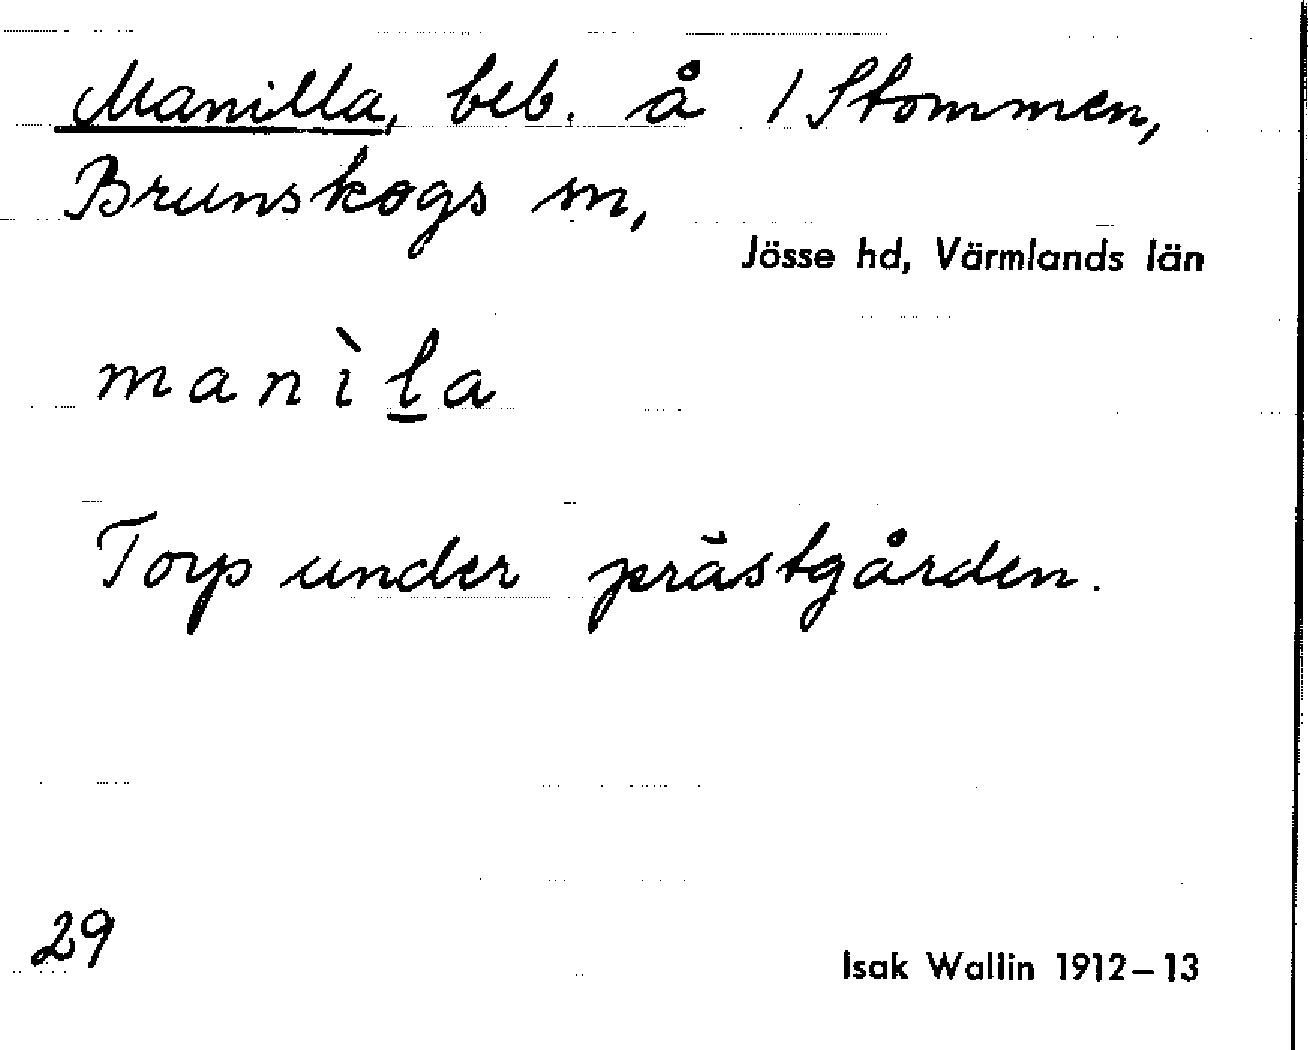 Manilla, beb. å 1 Stommen,
Brunskogs sn,
Jösse hd, Värmlands län
manìl̲a
Torp under prästgården.
29
Isak Wallin 1912–13